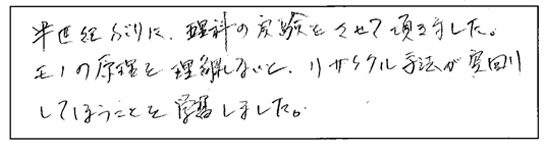 半世紀ぶりに、理科の実験をさせて頂きました。
モノの原理を理解しないと、リサイクル手法が空回り
してしまうことを学習しました。